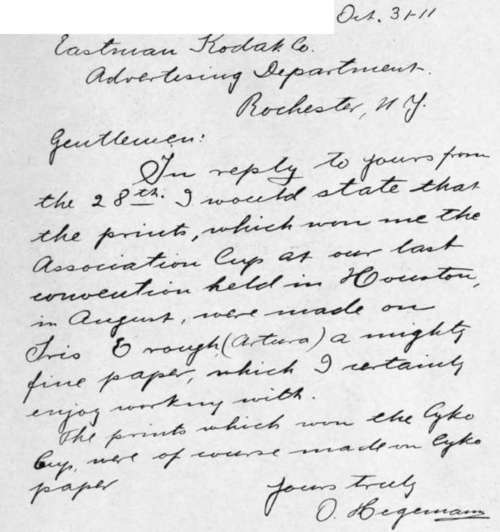 Oct. 31-11
Eastman Kodak Co.
Advertising Department.
Rochester, N Y.
Gentlemen:
In reply to yours from
the 28th. I would state that
the prints, which won me the
Association Cup at our last
convention held in Houston,
in August, were made on
Iris E rough (Artura) a mighty
fine paper, which I certainly
enjoy working with.
The prints which won the Cyko
Cup, were of course made on Cyko
paper
Yours truly
O. Hegemann